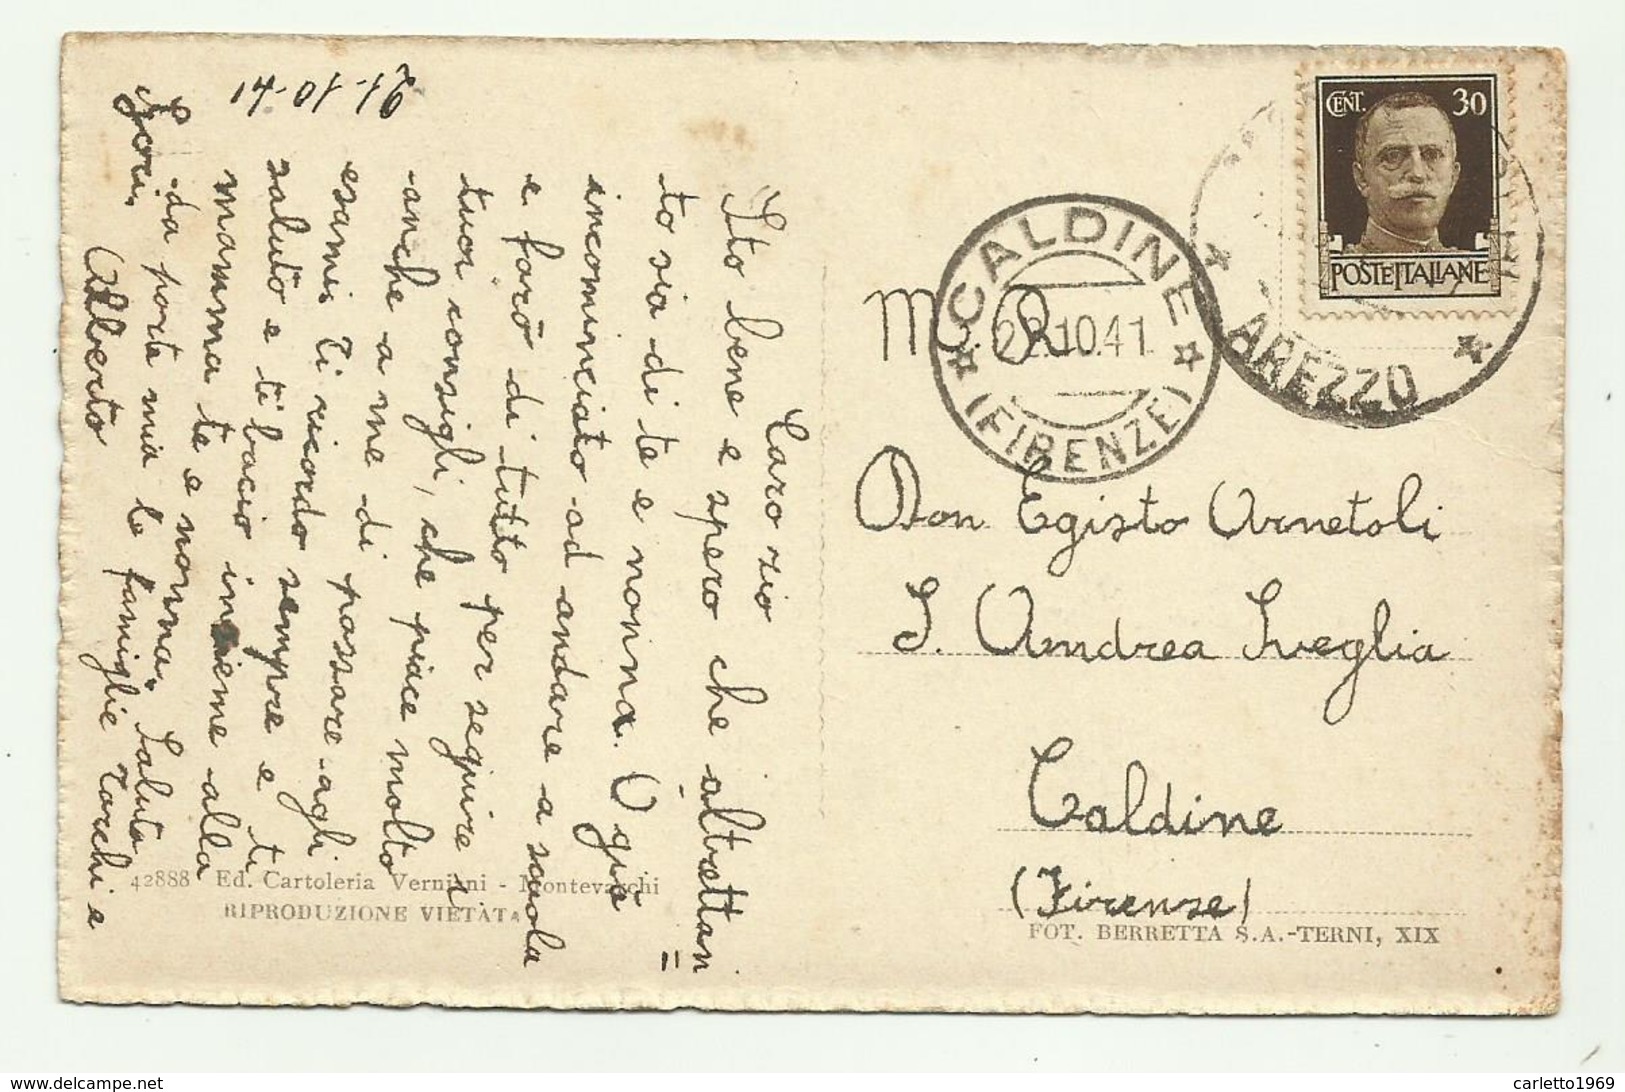 21-10-41
Caro zio
Sto bene e spero che altrettan
=
to sia di te e nonna. O già
incominciato ad andare a scuola
e farò di tutto per seguire i
tuoi consigli, che piace molto
anche a me di passare agli
esami. Ti ricordo sempre e ti
saluto e ti bacio insieme alla
mamma te e nonna. Saluta
da parte mia le famiglie Torchi e
Gori.
Alberto
42888 Ed. Cartoleria Vernini - Montevarchi
RIPRODUZIONE VIETATA
CENT. 30
POSTE ITALIANE
AREZZO
CALDINE
22.10.41
(FIRENZE)
M. R.
Don Egisto Arnetoli
S. Andrea Sveglia
Caldine
(Firenze)
FOT. BERRETTA S.A.-TERNI, XIX
delcampe.net
carletto1969